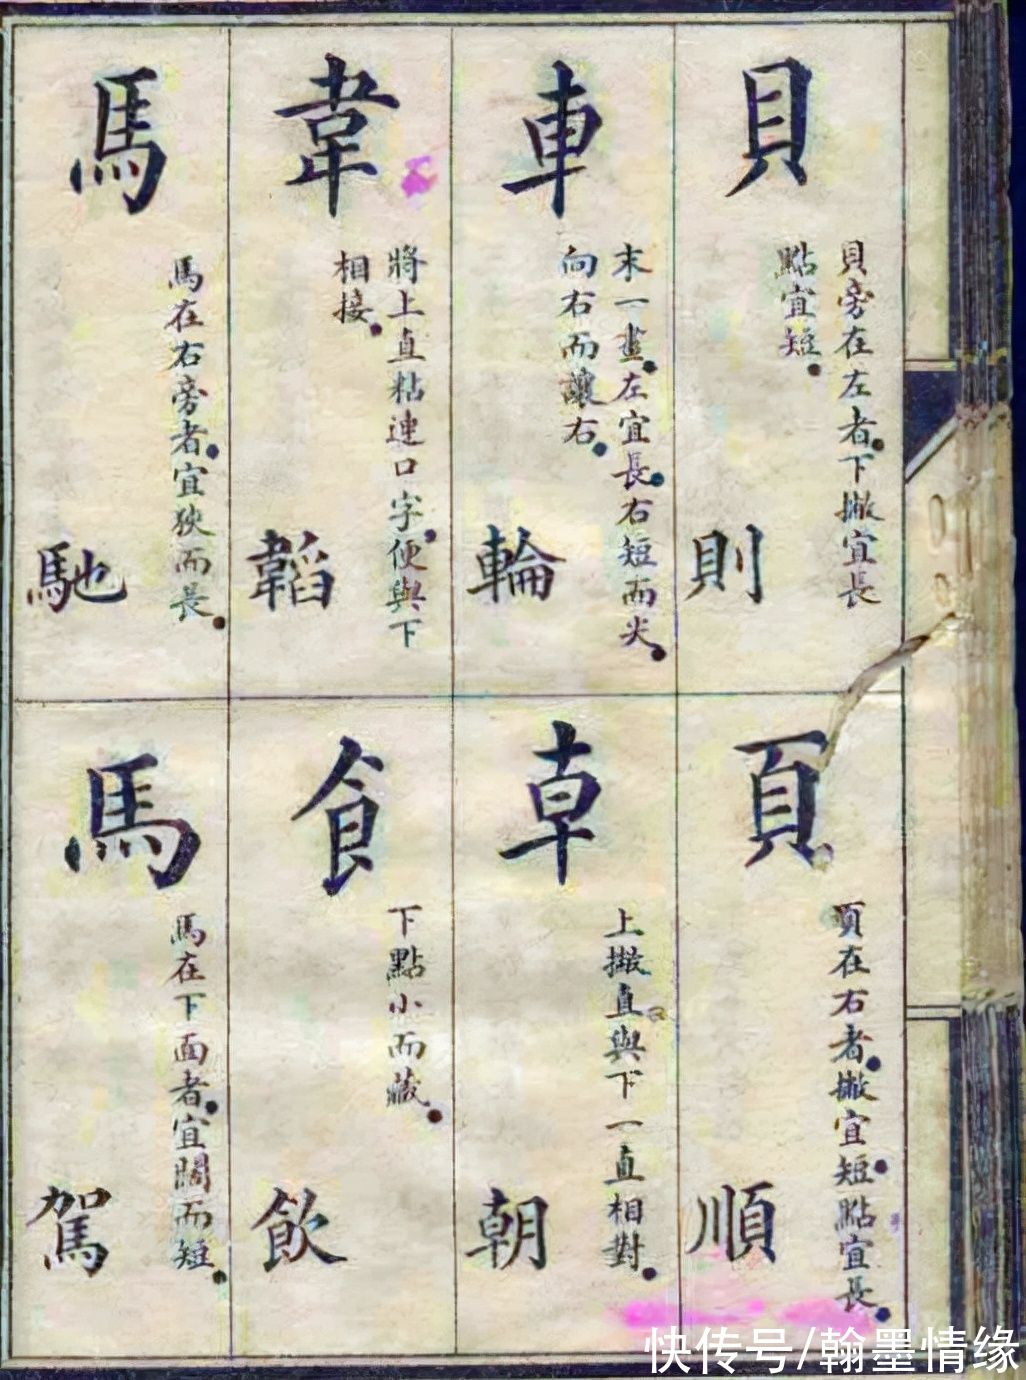 貝
貝旁在左者下撇宜長
點宜短
則
車
末一畫左宜長右短而尖
向右而讓右
輪
韋
將上直粘連口字便與下
相接
韜
馬
馬在右旁者宜狹而長
馳
頁
頁在右者撇宜短點宜長
順
𠦝
上撇直與下一直相對
朝
飠
下點小而藏
飲
馬
馬在下面者宜闊而短
駕
快传号/翰墨情缘